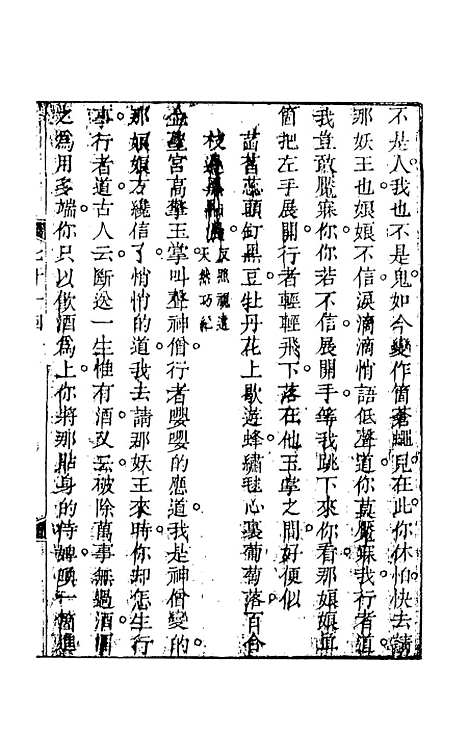 不是人我也不是鬼如今變作箇蒼蠅兒在此你休怕快去請
那妖王也娘娘不信淚滴滴悄語低聲道你莫魘寐我行者道
我豈敢魘寐你你若不信展開手等我跳下來你看那娘娘真
箇把左手展開行者輕輕飛下落在他玉掌之間好便似
菡萏蕊頭釘黑豆牡丹花上歇遊蜂繡毬心裏葡萄落百合
枝邊黑點濃
金聖宮高擎玉掌叫聲神僧行者嚶嚶的應道我是神僧變的
那娘娘方纔信了悄悄的道我去請那妖王來時你却怎生行
事行者道古人云斷送一生惟有酒又云破除萬事無過酒酒
之爲用多端你只以飲酒爲上你將那貼身的侍婢喚一箇進